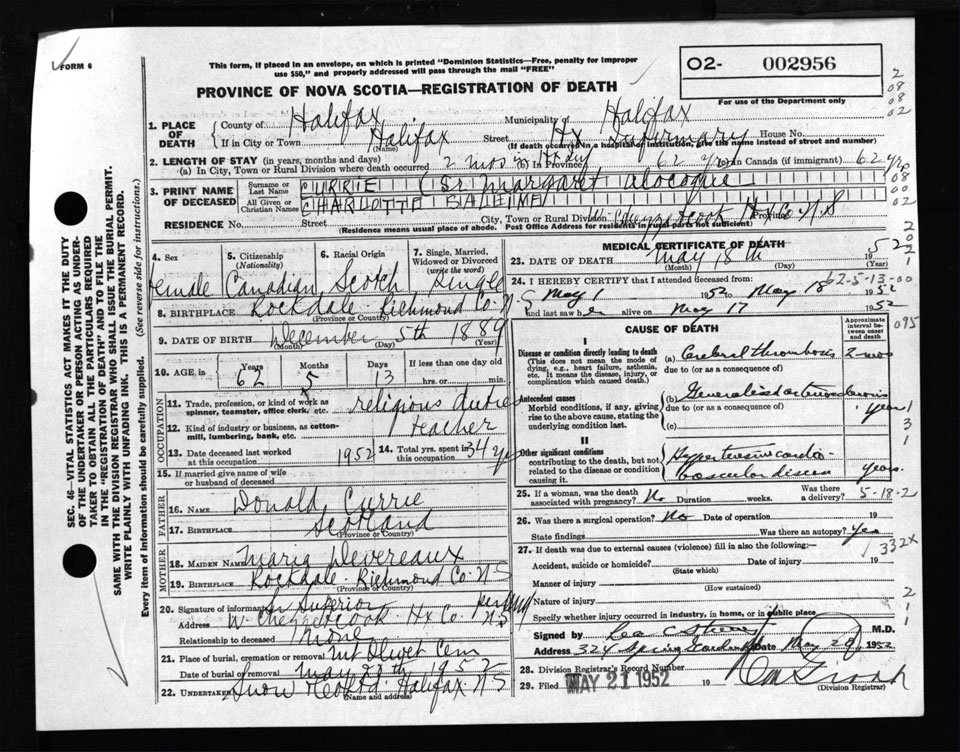 FORM 6
This form, if placed in an envelope, on which is printed "Dominion Statistics—Free, penalty for improper
use $50," and properly addressed will pass through the mail "FREE"
PROVINCE OF NOVA SCOTIA—REGISTRATION OF DEATH
O2- 002956
For use of the Department only
2 08 08 02
1. PLACE OF DEATH
County of Halifax Municipality of Halifax
If in City or Town Halifax Street Hx Infirmary House No.
(Name) (If death occurred in a hospital or institution, give the name instead of street and number)
2. LENGTH OF STAY (in years, months and days)
(a) In City, Town or Rural Division where death occurred 2 mos (b) In Province 62 yrs (c) in Canada (if immigrant) 62 yrs
3. PRINT NAME OF DECEASED
Surname or Last Name CURRIE (Sr. Margaret Alocoque
All Given or Christian Names CHARLOTTE SALEIME
RESIDENCE No. Street City, Town or Rural Division W. Chezzetcook Hx Co. Province N S
(Residence means usual place of abode. Post Office Address for residents in rural parts not sufficient)
4. Sex Female
5. Citizenship (Nationality) Canadian
6. Racial Origin Scotch
7. Single, Married, Widowed or Divorced (write the word) Single
8. BIRTHPLACE Rockdale - Richmond Co. N S
(Province or Country)
9. DATE OF BIRTH December 5th 1889
(Month) (Day) (Year)
10. AGE in Years 62 Months 5 Days 13 If less than one day old hrs. or min.
OCCUPATION
11. Trade, profession or kind of work as spinner, teamster, office clerk, etc. religious duties
12. Kind of industry or business, as cotton-mill, lumbering, bank, etc. teacher
13. Date deceased last worked at this occupation 1952
14. Total yrs. spent in this occupation 34 yrs
15. If married give name of wife or husband of deceased
FATHER
16. NAME Donald Currie
17. BIRTHPLACE Scotland
(Province or Country)
MOTHER
18. MAIDEN NAME Maria Devereaux
19. BIRTHPLACE Rockdale - Richmond Co. N S
(Province or Country)
20. Signature of informant Sr Superior
Address W. Chezzetcook - Hx Co. N.S
Relationship to deceased None
21. Place of burial, cremation or removal Mt Olivet Cem
Date of burial or removal May 1952
22. Undertaker Snow Halifax N S
(Name and address)
MEDICAL CERTIFICATE OF DEATH
23. DATE OF DEATH May 18th 52
(Month) (Day) (Year)
24. I HEREBY CERTIFY that I attended deceased from:
May 1 1952 to May 18 1952
and last saw her alive on May 17 1952
62-5-13-00
CAUSE OF DEATH
Approximate interval between onset and death
095
I
Disease or condition directly leading to death (This does not mean the mode of dying, e.g., heart failure, asthenia, etc. It means the disease, injury, or complication which caused death.)
(a) Cerebral thrombosis 2 mos
due to (or as a consequence of)
Antecedent causes
Morbid conditions, if any, giving rise to the above cause, stating the underlying condition last.
(b) Generalized arteriosclerosis years
due to (or as a consequence of)
(c)
II
Other significant conditions contributing to the death, but not related to the disease or condition causing it.
Hypertensive cardio-vascular disease years
25. If a woman, was the death associated with pregnancy? No Duration weeks. Was there a delivery? 5-18-2
26. Was there a surgical operation? No Date of operation 19
State findings Was there an autopsy? Yes
27. If death was due to external causes (violence) fill in also the following:—
332X
Accident, suicide or homicide? Date of injury 19
(State which)
Manner of injury
(How sustained)
Nature of injury
Specify whether injury occurred in industry, in home, or in public place
Signed by M.D.
Address 324 Spring Garden Rd Date May 20 1952
28. Division Registrar's Record Number
29. Filed MAY 21 1952 19
(Division Registrar)
SEC. 46—VITAL STATISTICS ACT MAKES IT THE DUTY
OF THE UNDERTAKER OR PERSON ACTING AS UNDER-
TAKER TO OBTAIN ALL THE PARTICULARS REQUIRED
IN THE "REGISTRATION OF DEATH" AND TO FILE THE
SAME WITH THE DIVISION REGISTRAR WHO SHALL ISSUE THE BURIAL PERMIT.
WRITE PLAINLY WITH UNFADING INK. THIS IS A PERMANENT RECORD.
Every item of information should be carefully supplied. (See reverse side for instructions.)